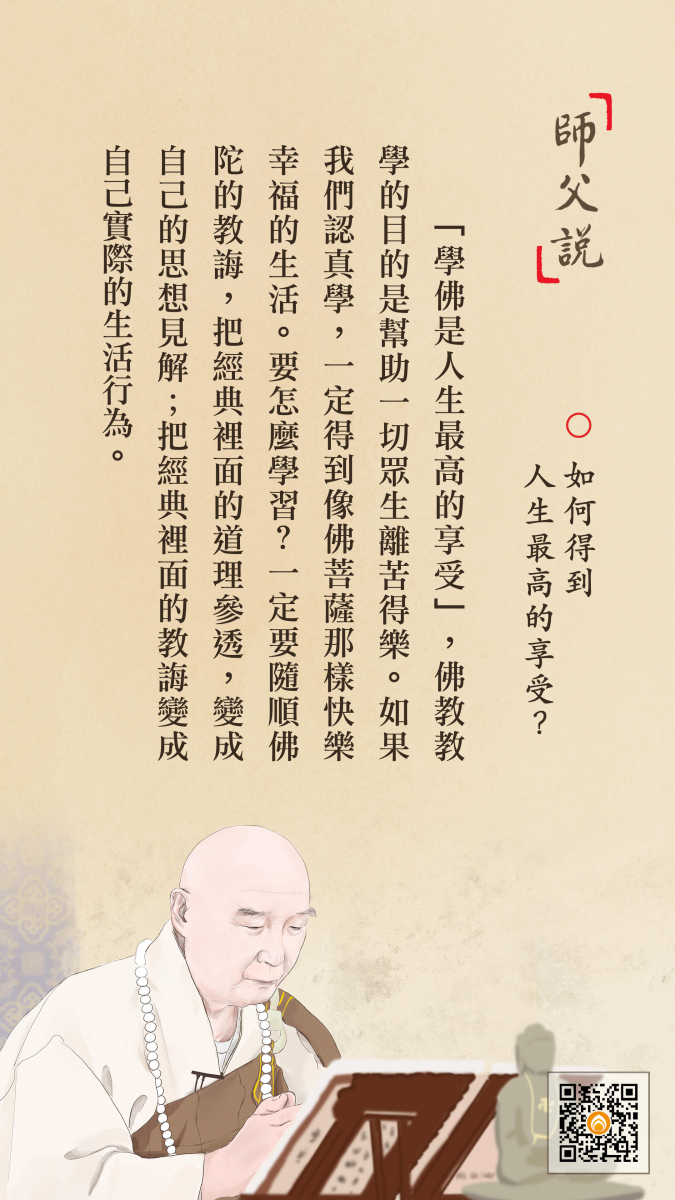 師父說
如何得到
人生最高的享受？
「學佛是人生最高的享受」，佛教教
學的目的是幫助一切眾生離苦得樂。如果
我們認真學，一定得到像佛菩薩那樣快樂
幸福的生活。要怎麼學習？一定要隨順佛
陀的教誨，把經典裡面的道理參透，變成
自己的思想見解；把經典裡面的教誨變成
自己實際的生活行為。